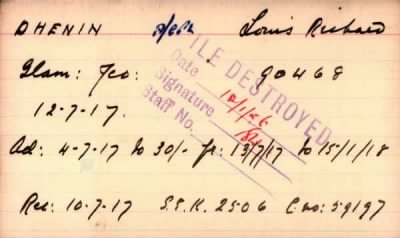 DHENIN Louis Richard
Glam: Yeo: 90468
12-7-17.
FILE DESTROYED
Date
Signature
Staff No.
Ad: 4-7-17 to 30/- fr: 13/7/17 to 15/1/18
Rec: 10-7-17 S.S.K. 2506 C. no: 59197